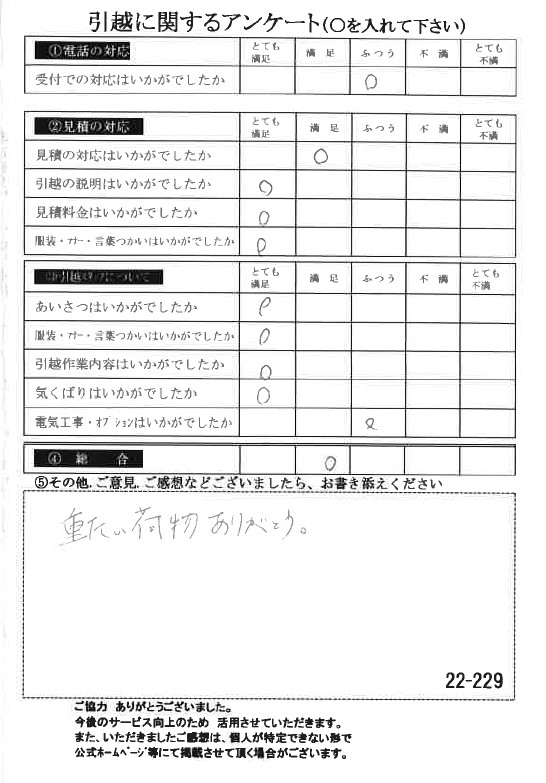 引越に関するアンケート(〇を入れて下さい)
①電話の対応 とても満足 満足 ふつう 不満 とても不満
受付での対応はいかがでしたか 〇
②見積の対応 とても満足 満足 ふつう 不満 とても不満
見積の対応はいかがでしたか 〇
引越の説明はいかがでしたか 〇
見積料金はいかがでしたか 〇
服装・マナー・言葉つかいはいかがでしたか 〇
とても満足 満足 ふつう 不満 とても不満
あいさつはいかがでしたか 〇
服装・マナー・言葉つかいはいかがでしたか 〇
引越作業内容はいかがでしたか 〇
気くばりはいかがでしたか 〇
電気工事・オプションはいかがでしたか 〇
④ 総 合 〇
⑤その他.ご意見.ご感想などございましたら、お書き添えください
重たい荷物ありがとう。
22-229
ご協力 ありがとうございました。
今後のサービス向上のため 活用させていただきます。
また、いただきましたご感想は、個人が特定できない形で
公式ホームページ等にて掲載させて頂く場合がございます。